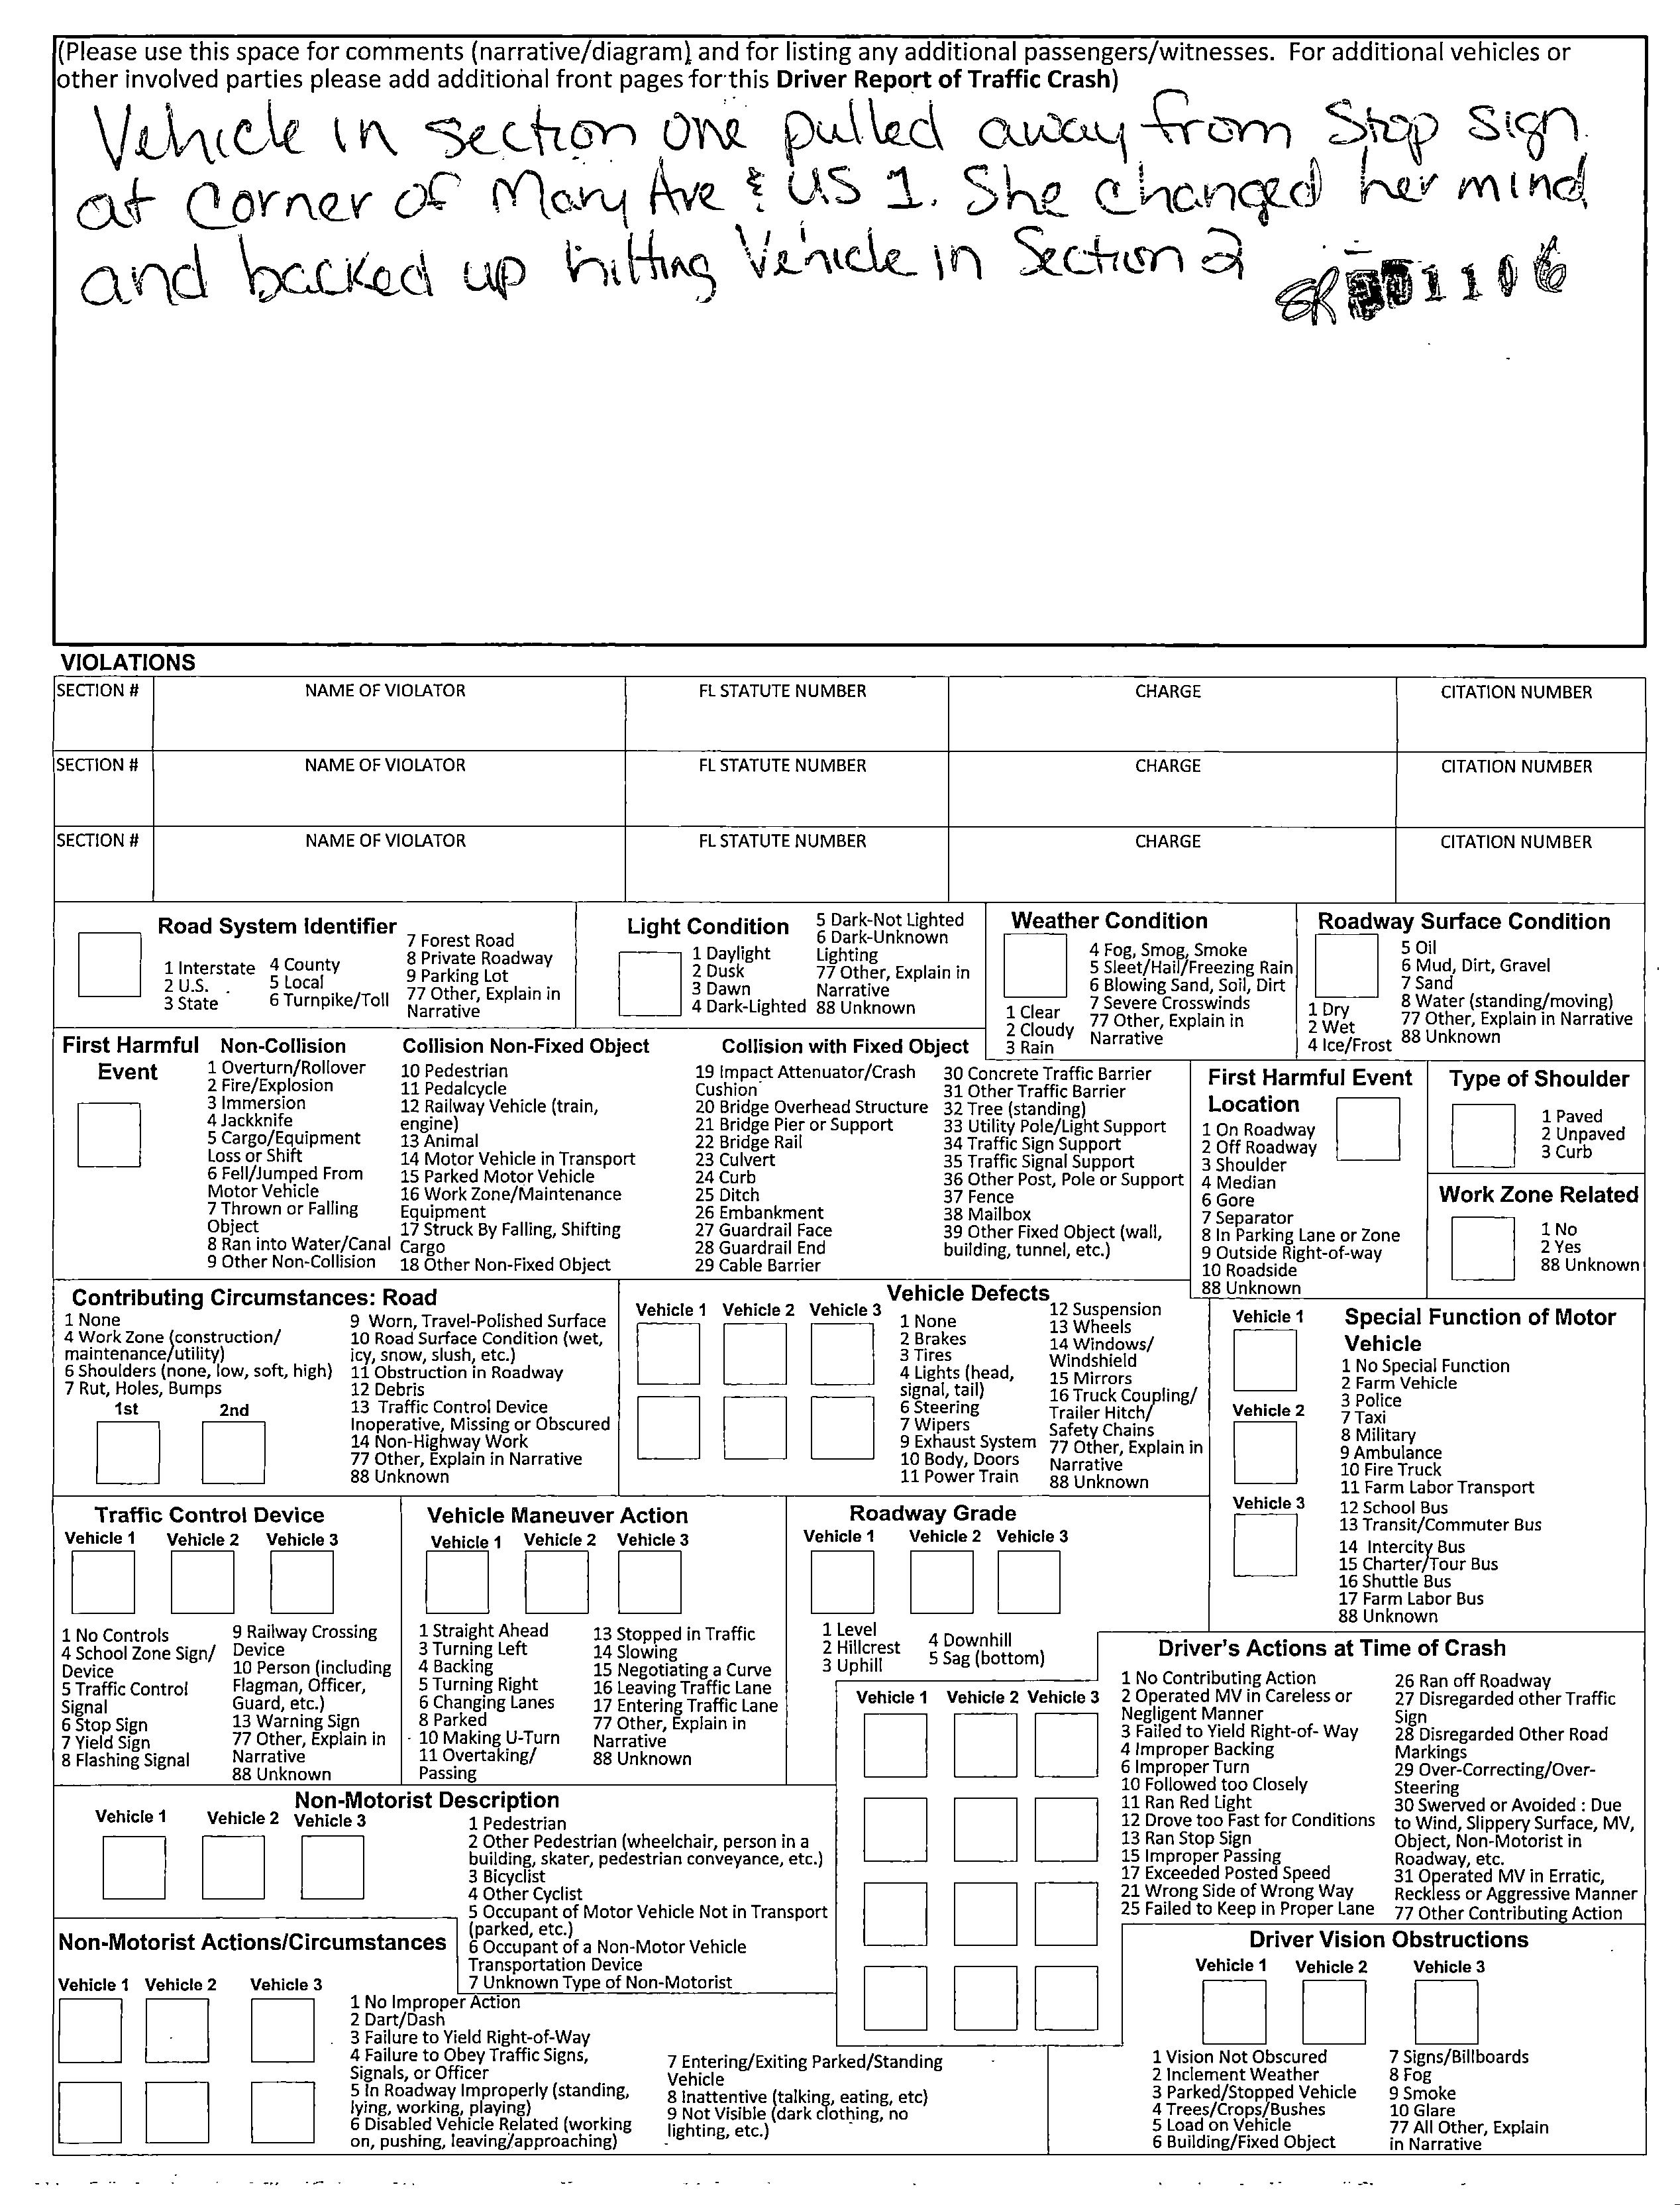 (Please use this space for comments (narrative/diagram) and for listing any additional passengers/witnesses. For additional vehicles or
other involved parties please add additional front pages for this Driver Report of Traffic Crash)
Vehicle in section one pulled away from Stop sign
at Corner of Mary Ave & US 1. She changed her mind
and backed up hitting Vehicle in Section 2
VIOLATIONS
SECTION # NAME OF VIOLATOR FL STATUTE NUMBER CHARGE CITATION NUMBER
SECTION # NAME OF VIOLATOR FL STATUTE NUMBER CHARGE CITATION NUMBER
SECTION # NAME OF VIOLATOR FL STATUTE NUMBER CHARGE CITATION NUMBER
Road System Identifier
1 Interstate
2 U.S.
3 State
4 County
5 Local
6 Turnpike/Toll
7 Forest Road
8 Private Roadway
9 Parking Lot
77 Other, Explain in
Narrative
Light Condition
1 Daylight
2 Dusk
3 Dawn
4 Dark-Lighted
5 Dark-Not Lighted
6 Dark-Unknown
Lighting
77 Other, Explain in
Narrative
88 Unknown
Weather Condition
1 Clear
2 Cloudy
3 Rain
4 Fog, Smog, Smoke
5 Sleet/Hail/Freezing Rain
6 Blowing Sand, Soil, Dirt
7 Severe Crosswinds
77 Other, Explain in
Narrative
Roadway Surface Condition
1 Dry
2 Wet
4 Ice/Frost
5 Oil
6 Mud, Dirt, Gravel
7 Sand
8 Water (standing/moving)
77 Other, Explain in Narrative
88 Unknown
First Harmful
Event
Non-Collision
1 Overturn/Rollover
2 Fire/Explosion
3 Immersion
4 Jackknife
5 Cargo/Equipment
Loss or Shift
6 Fell/Jumped From
Motor Vehicle
7 Thrown or Falling
Object
8 Ran into Water/Canal
9 Other Non-Collision
Collision Non-Fixed Object
10 Pedestrian
11 Pedalcycle
12 Railway Vehicle (train,
engine)
13 Animal
14 Motor Vehicle in Transport
15 Parked Motor Vehicle
16 Work Zone/Maintenance
Equipment
17 Struck By Falling, Shifting
Cargo
18 Other Non-Fixed Object
Collision with Fixed Object
19 Impact Attenuator/Crash
Cushion
20 Bridge Overhead Structure
21 Bridge Pier or Support
22 Bridge Rail
23 Culvert
24 Curb
25 Ditch
26 Embankment
27 Guardrail Face
28 Guardrail End
29 Cable Barrier
30 Concrete Traffic Barrier
31 Other Traffic Barrier
32 Tree (standing)
33 Utility Pole/Light Support
34 Traffic Sign Support
35 Traffic Signal Support
36 Other Post, Pole or Support
37 Fence
38 Mailbox
39 Other Fixed Object (wall,
building, tunnel, etc.)
First Harmful Event
Location
1 On Roadway
2 Off Roadway
3 Shoulder
4 Median
6 Gore
7 Separator
8 In Parking Lane or Zone
9 Outside Right-of-way
10 Roadside
88 Unknown
Type of Shoulder
1 Paved
2 Unpaved
3 Curb
Work Zone Related
1 No
2 Yes
88 Unknown
Contributing Circumstances: Road
1 None
4 Work Zone (construction/
maintenance/utility)
6 Shoulders (none, low, soft, high)
7 Rut, Holes, Bumps
1st 2nd
9 Worn, Travel-Polished Surface
10 Road Surface Condition (wet,
icy, snow, slush, etc.)
11 Obstruction in Roadway
12 Debris
13 Traffic Control Device
Inoperative, Missing or Obscured
14 Non-Highway Work
77 Other, Explain in Narrative
88 Unknown
Vehicle Defects
Vehicle 1 Vehicle 2 Vehicle 3
1 None
2 Brakes
3 Tires
4 Lights (head,
signal, tail)
6 Steering
7 Wipers
9 Exhaust System
10 Body, Doors
11 Power Train
12 Suspension
13 Wheels
14 Windows/
Windshield
15 Mirrors
16 Truck Coupling/
Trailer Hitch/
Safety Chains
77 Other, Explain in
Narrative
88 Unknown
Vehicle 1
Vehicle 2
Vehicle 3
Special Function of Motor
Vehicle
1 No Special Function
2 Farm Vehicle
3 Police
7 Taxi
8 Military
9 Ambulance
10 Fire Truck
11 Farm Labor Transport
12 School Bus
13 Transit/Commuter Bus
14 Intercity Bus
15 Charter/Tour Bus
16 Shuttle Bus
17 Farm Labor Bus
88 Unknown
Traffic Control Device
Vehicle 1 Vehicle 2 Vehicle 3
1 No Controls
4 School Zone Sign/
Device
5 Traffic Control
Signal
6 Stop Sign
7 Yield Sign
8 Flashing Signal
9 Railway Crossing
Device
10 Person (including
Flagman, Officer,
Guard, etc.)
13 Warning Sign
77 Other, Explain in
Narrative
88 Unknown
Vehicle Maneuver Action
Vehicle 1 Vehicle 2 Vehicle 3
1 Straight Ahead
3 Turning Left
4 Backing
5 Turning Right
6 Changing Lanes
8 Parked
10 Making U-Turn
11 Overtaking/
Passing
13 Stopped in Traffic
14 Slowing
15 Negotiating a Curve
16 Leaving Traffic Lane
17 Entering Traffic Lane
77 Other, Explain in
Narrative
88 Unknown
Roadway Grade
Vehicle 1 Vehicle 2 Vehicle 3
1 Level
2 Hillcrest
3 Uphill
4 Downhill
5 Sag (bottom)
Vehicle 1 Vehicle 2 Vehicle 3
Driver's Actions at Time of Crash
1 No Contributing Action
2 Operated MV in Careless or
Negligent Manner
3 Failed to Yield Right-of- Way
4 Improper Backing
6 Improper Turn
10 Followed too Closely
11 Ran Red Light
12 Drove too Fast for Conditions
13 Ran Stop Sign
15 Improper Passing
17 Exceeded Posted Speed
21 Wrong Side of Wrong Way
25 Failed to Keep in Proper Lane
26 Ran off Roadway
27 Disregarded other Traffic
Sign
28 Disregarded Other Road
Markings
29 Over-Correcting/Over-
Steering
30 Swerved or Avoided : Due
to Wind, Slippery Surface, MV,
Object, Non-Motorist in
Roadway, etc.
31 Operated MV in Erratic,
Reckless or Aggressive Manner
77 Other Contributing Action
Non-Motorist Description
Vehicle 1 Vehicle 2 Vehicle 3
1 Pedestrian
2 Other Pedestrian (wheelchair, person in a
building, skater, pedestrian conveyance, etc.)
3 Bicyclist
4 Other Cyclist
5 Occupant of Motor Vehicle Not in Transport
(parked, etc.)
6 Occupant of a Non-Motor Vehicle
Transportation Device
7 Unknown Type of Non-Motorist
Non-Motorist Actions/Circumstances
Vehicle 1 Vehicle 2 Vehicle 3
1 No Improper Action
2 Dart/Dash
3 Failure to Yield Right-of-Way
4 Failure to Obey Traffic Signs,
Signals, or Officer
5 In Roadway Improperly (standing,
lying, working, playing)
6 Disabled Vehicle Related (working
on, pushing, leaving/approaching)
7 Entering/Exiting Parked/Standing
Vehicle
8 Inattentive (talking, eating, etc)
9 Not Visible (dark clothing, no
lighting, etc.)
Driver Vision Obstructions
Vehicle 1 Vehicle 2 Vehicle 3
1 Vision Not Obscured
2 Inclement Weather
3 Parked/Stopped Vehicle
4 Trees/Crops/Bushes
5 Load on Vehicle
6 Building/Fixed Object
7 Signs/Billboards
8 Fog
9 Smoke
10 Glare
77 All Other, Explain
in Narrative